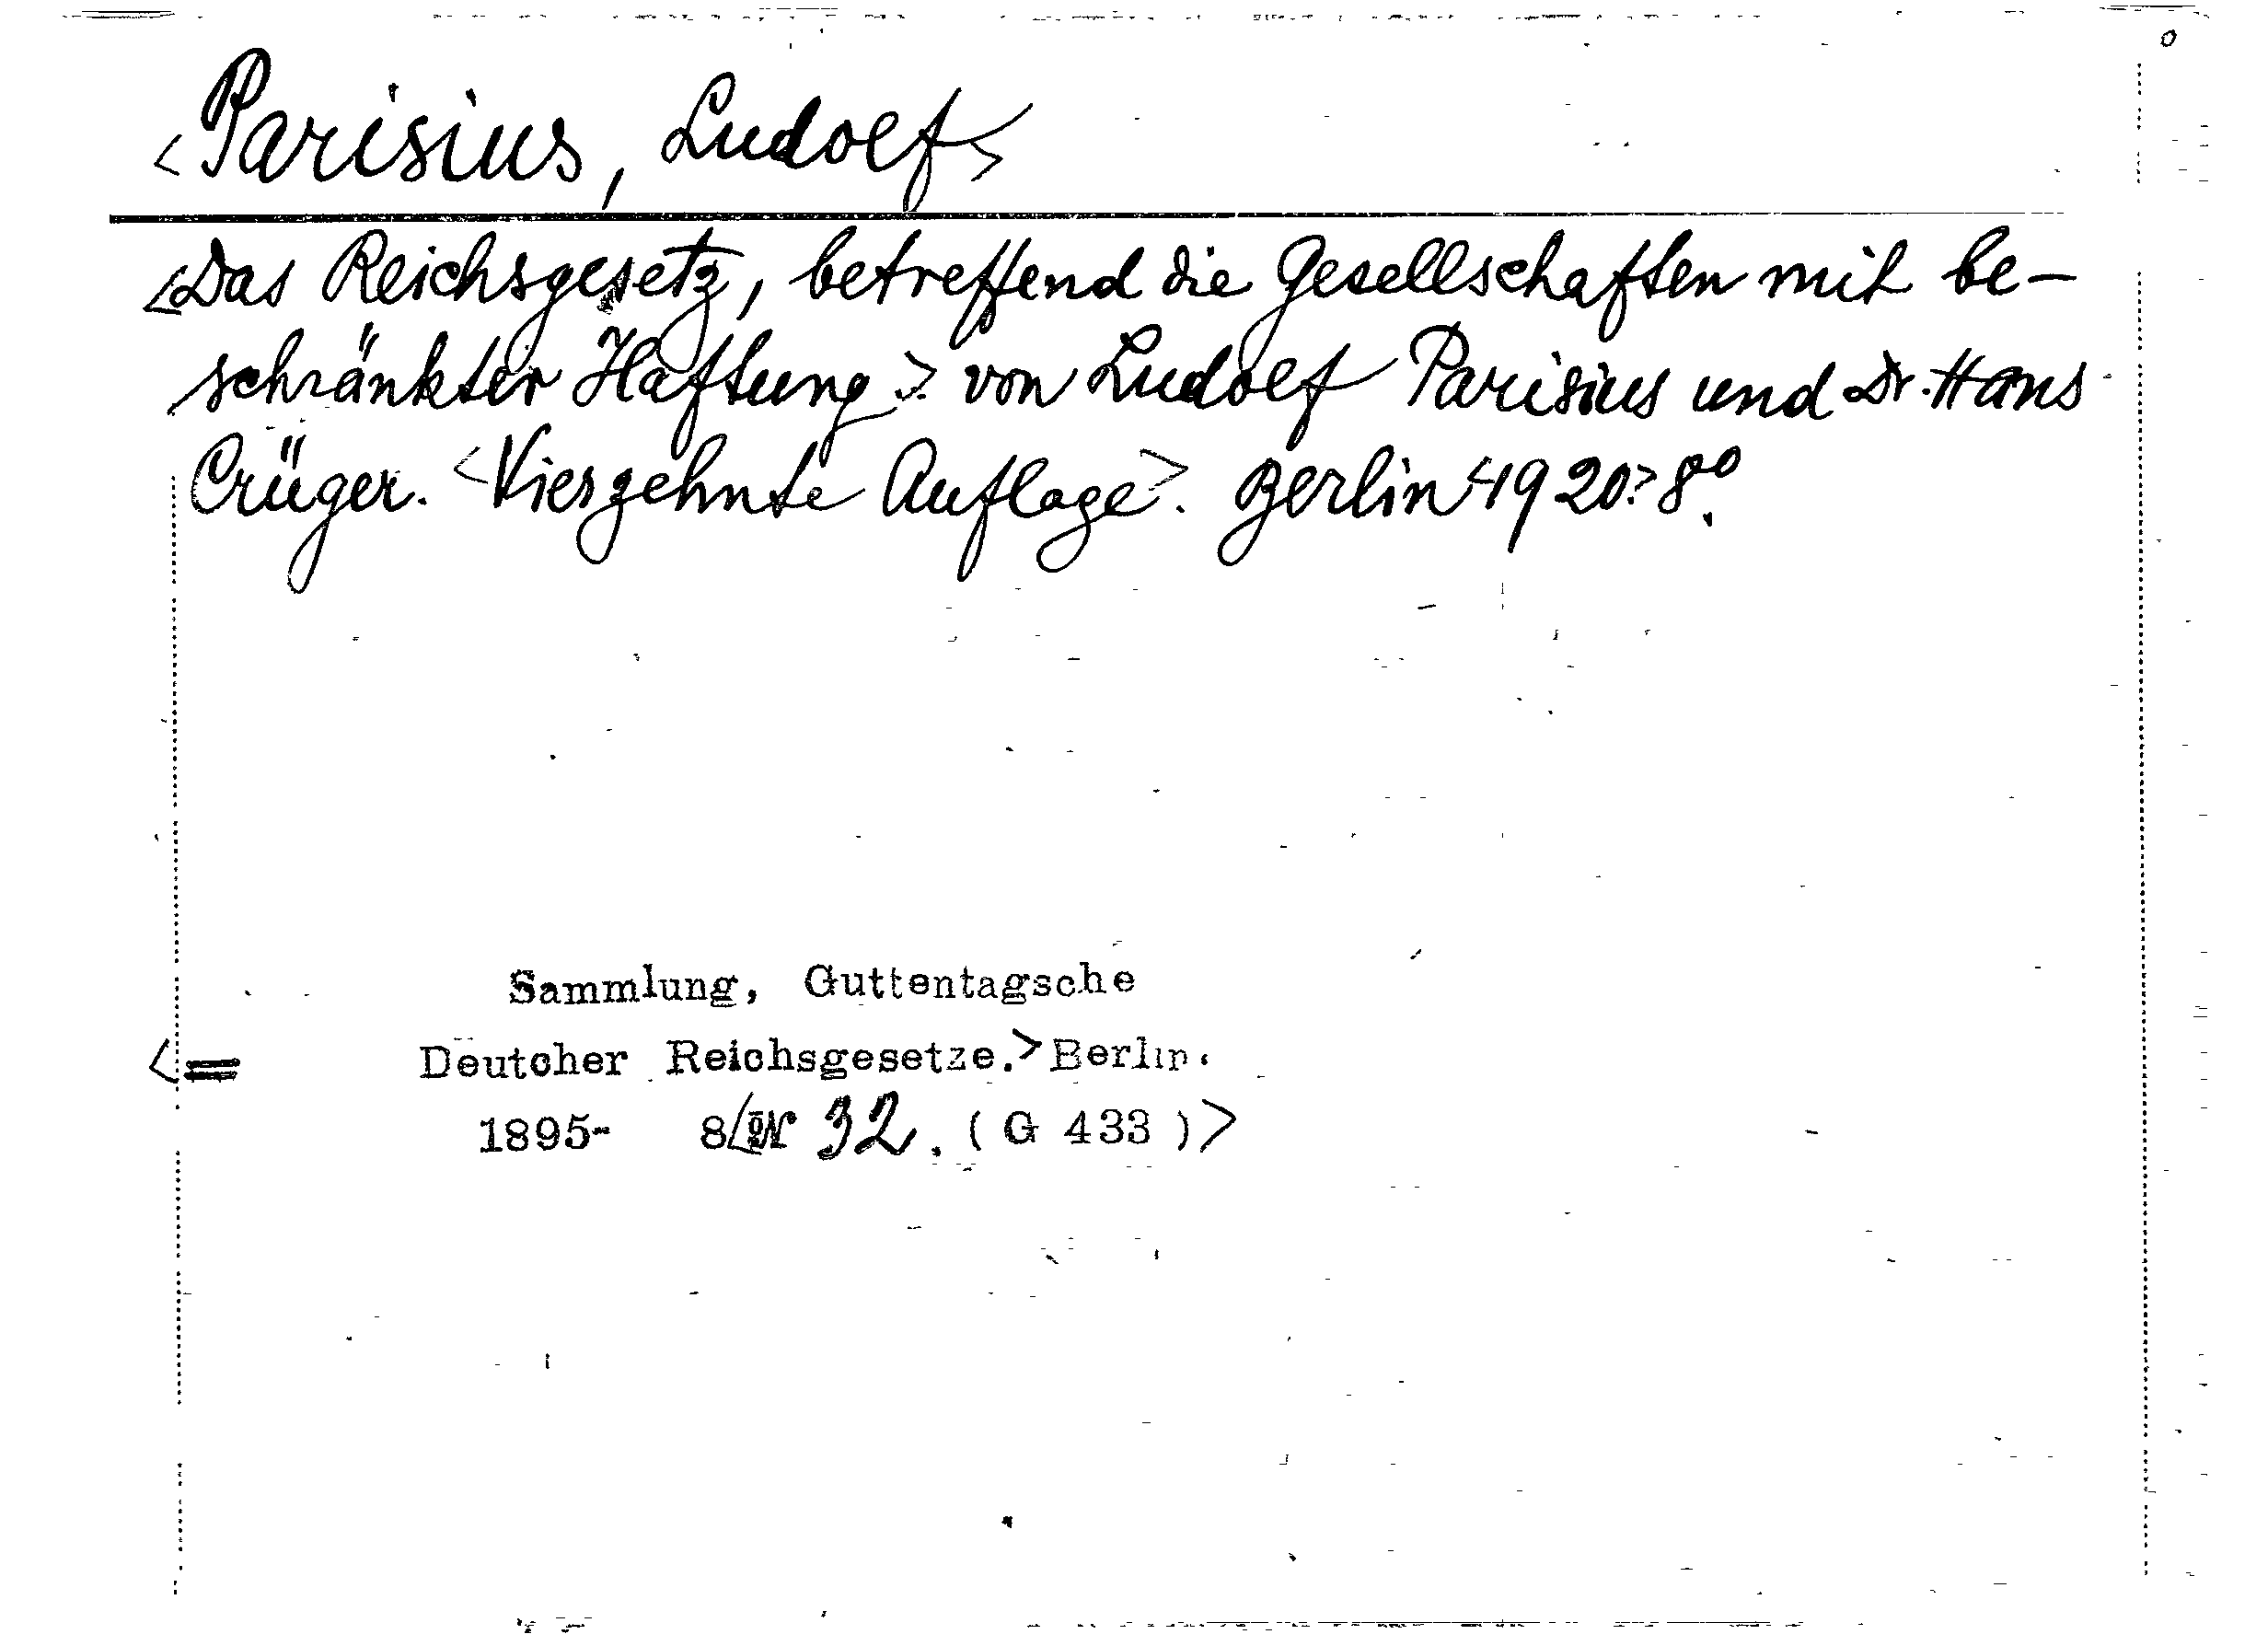 <Parisius, Ludolf>
<Das Reichsgesetz, betreffend die Gesellschaften mit be-
schränkter Haftung>. von Ludolf Parisius und Dr. Hans
Crüger. <Vierzehnte Auflage>. Berlin <1920>. 8º.
Sammlung, Guttentagsche
<= Deutcher Reichsgesetze.> Berlin.
1895- 8º <N 32. (G 433)>